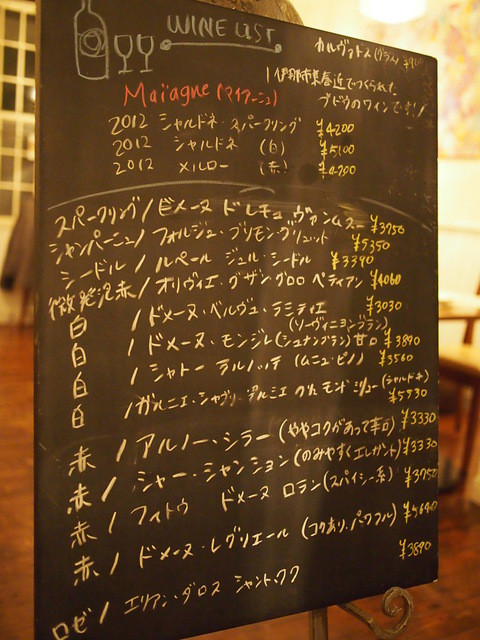 WINE LIST
カルヴァドス(グラス)
伊那市東春近でつくられた
ブドウのワインです!
Maiagne (マイアージュ)
2012 シャルドネ・スパークリング ¥4200
2012 シャルドネ (白) ¥5100
2012 メルロー (赤) ¥4200
スパークリング / ドメーヌ ドレ
シャンパーニュ / フォルジュ・ブリモン・ブリュット ¥3750
シードル / ルペール ジュル・シードル ¥5350
微発泡赤 / オリヴィエ・クザン グロロ ペティアン ¥3390
¥4060
白 / ドメーヌ・ベルヴュ・ラミティエ
(ソーヴィニヨンブラン) ¥3030
白 / ドメーヌ・モンジレ(シュナンブラン)甘口 ¥3890
白 / シャトー テルノッテ (ムニュ・ピノ) ¥3560
白 / ガルニエ・シャブリ (シャルドネ)
¥5730
赤 / アルノー・シラー (ややコクがあって辛口) ¥3330
赤 / シャー・シャンション(のみやすくエレガント) ¥3330
赤 / フィトウ ドメーヌ ロラン(スパイシー系) ¥3750
赤 / ドメーヌ・レグリエール (コクあり、パワフル)
¥3890
ロゼ / エリアン・ダロス シャントゥクク